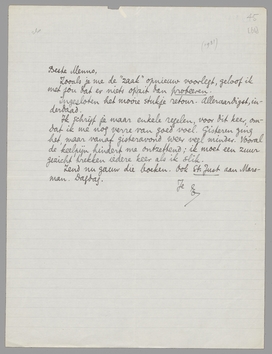 Beste Menno,
Zooals je me de "zaak" opnieuw voorlegt, geloof ik
met jou dat er niets opzit dan probeeren.
Ingesloten het mooie stukje retour. Alleraardigst, in-
derdaad.
Ik schrijf je maar enkele regelen, voor dit keer, om-
dat ik me nog verre van goed voel. Gisteren ging
het maar vanaf gisteravond weer veel minder. Vooral
de keelpijn hindert me ontzettend; ik moet een zuur
gezicht trekken iedere keer als ik slik.
Zend nu gauw die boeken. Ook St. Just aan Mars-
man. Dafdag.
Je
E